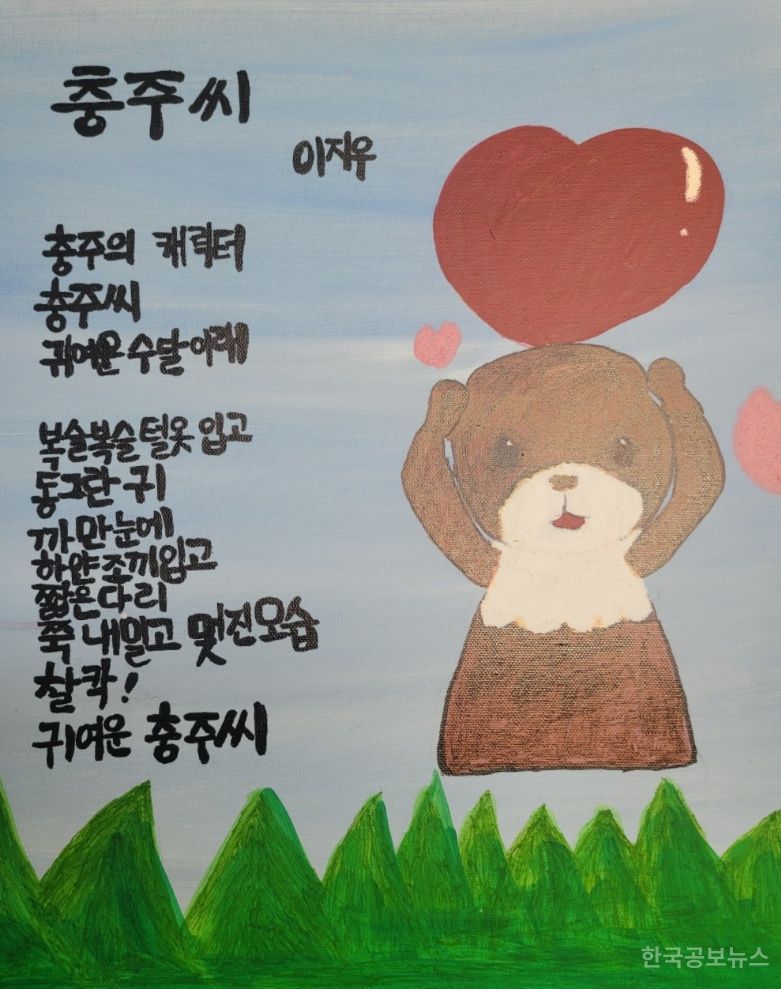 충주씨
이지우
충주의 캐릭터
충주씨
귀여운 수달이래
복슬복슬 털옷 입고
동그란 귀
까만 눈에
하얀 조끼 입고
짧은 다리
쭉 내밀고 멋진 모습
찰칵!
귀여운 충주씨
한국공보뉴스